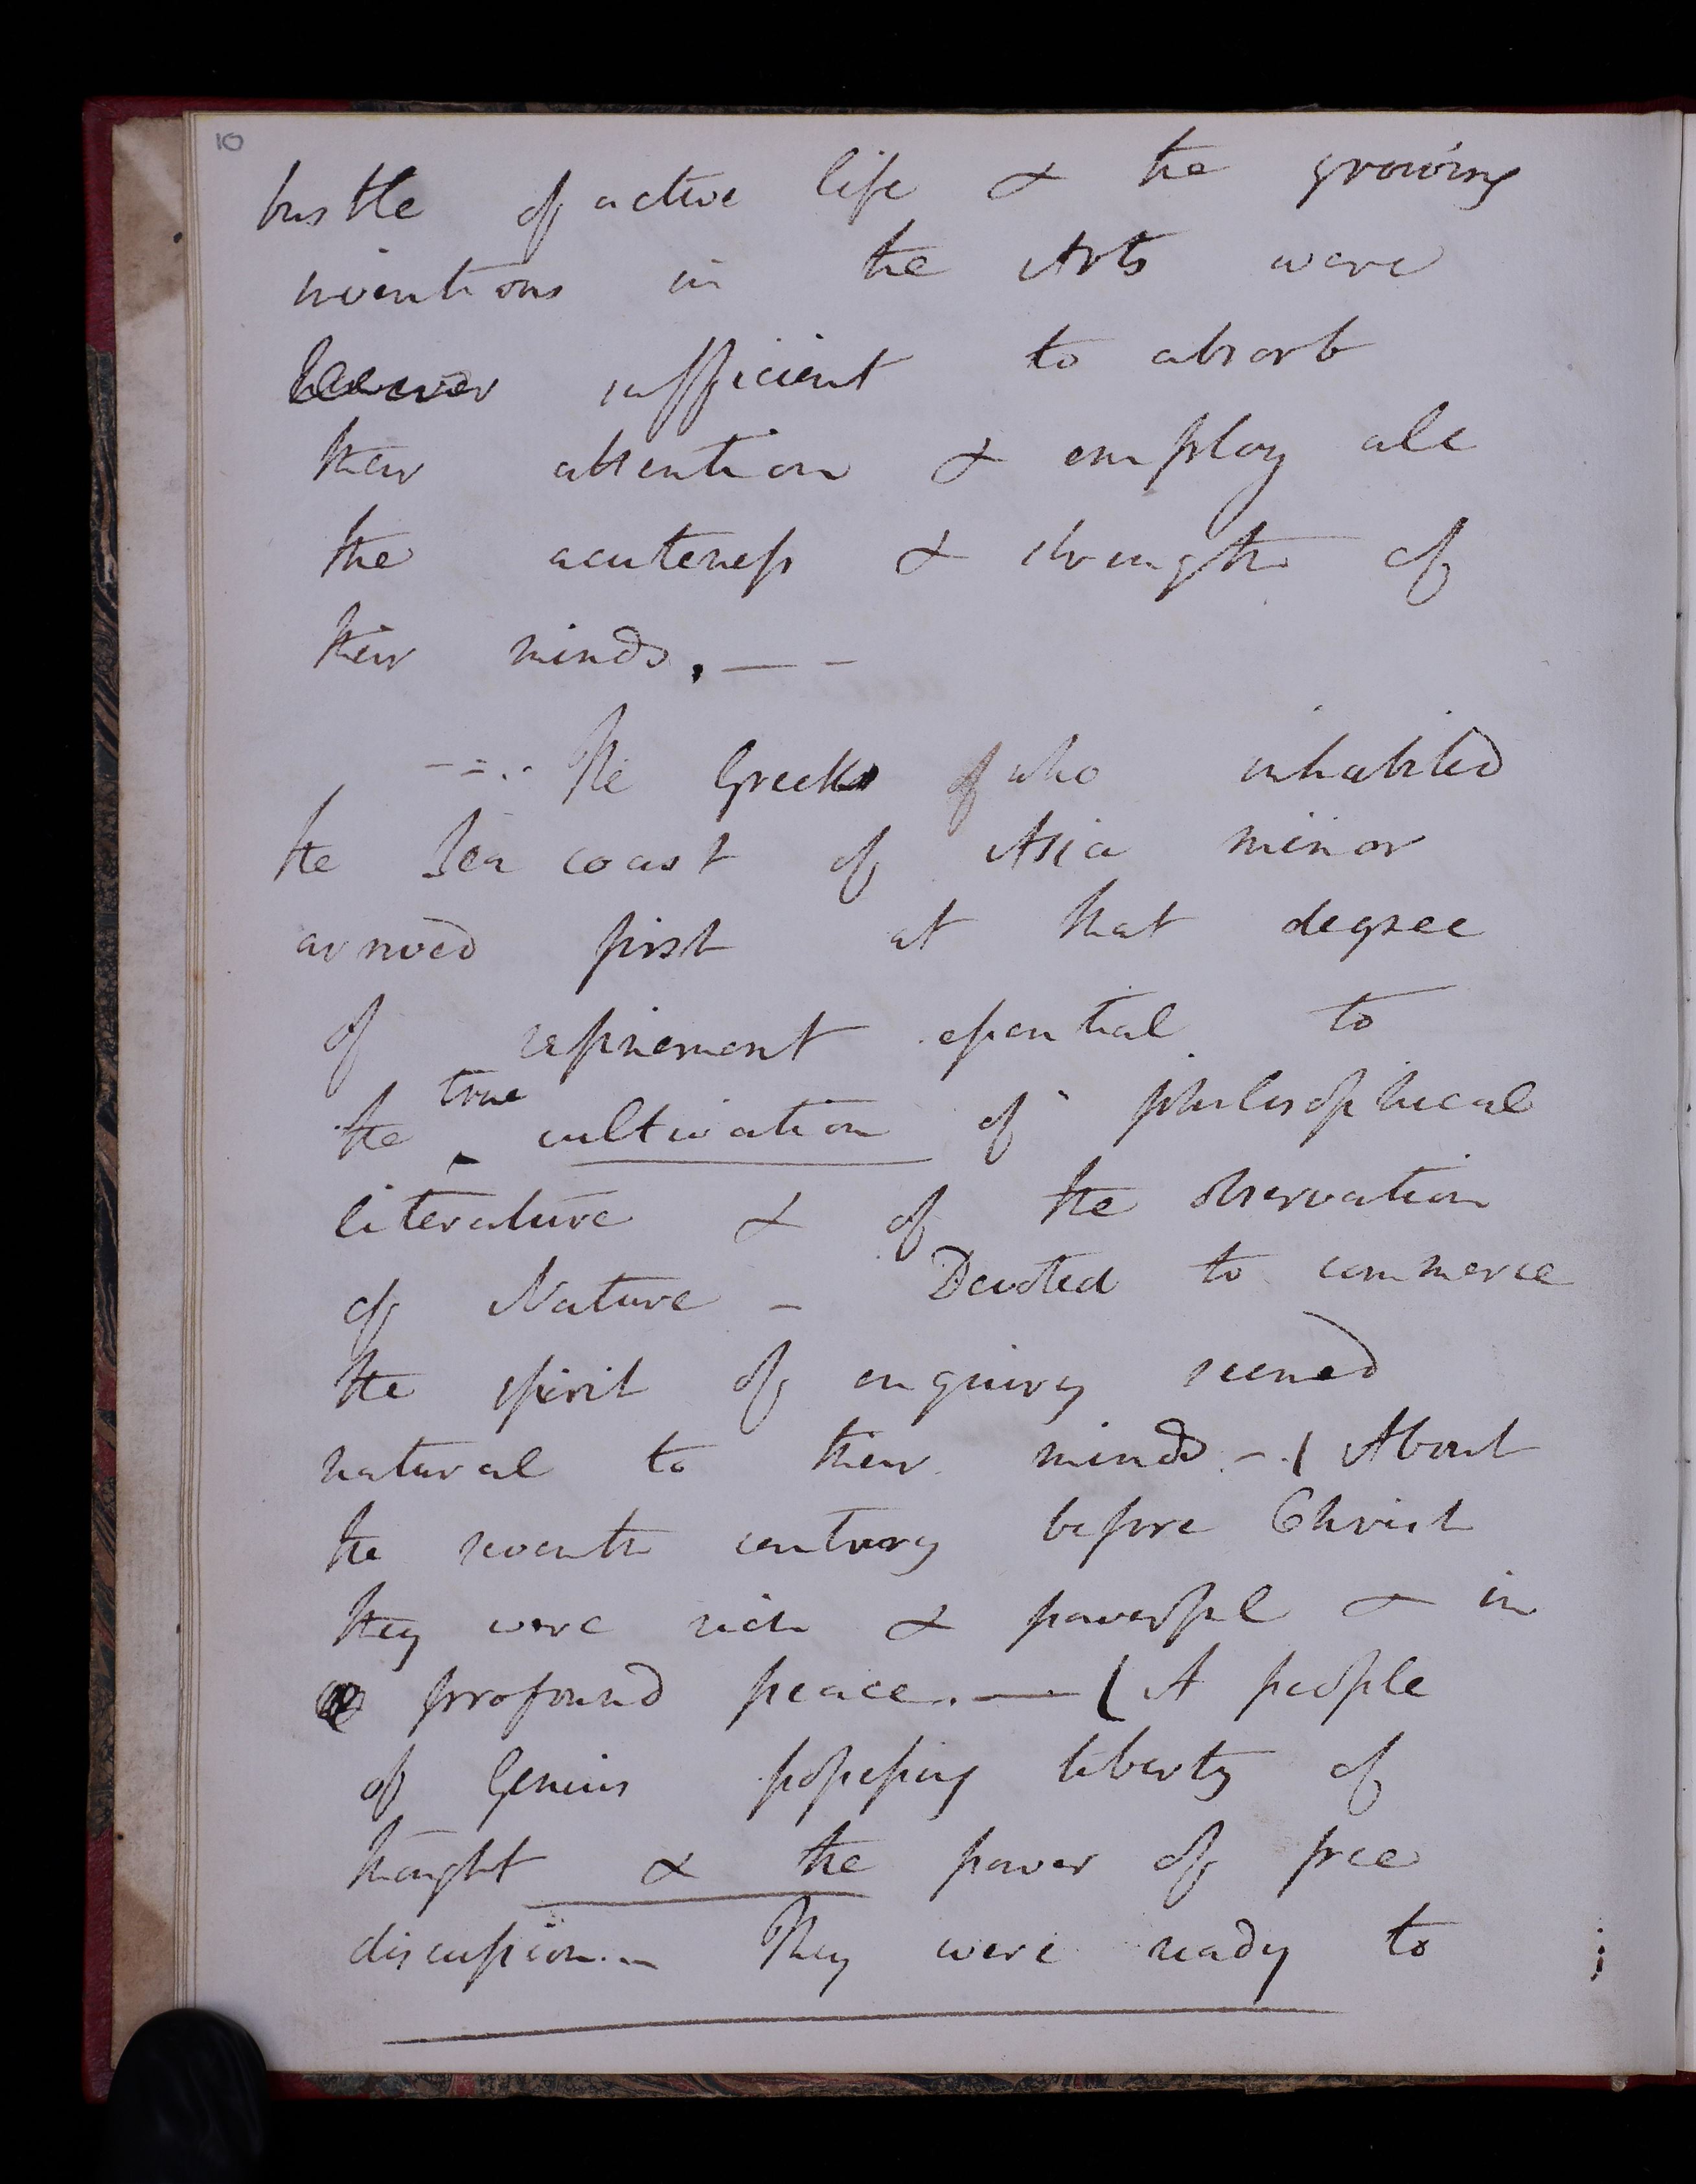 10
bustle of active life & the growing
inventions in the Arts were
sufficient to absorb
their attention & employ all
the acuteness & strength of
their minds. — –
--.. The Greeks who inhabited
the Sea coast of Asia minor
arrived first at that degree
of refinement essential to
the true cultivation of philosophical
literature & of the observation
of Nature – Devoted to commerce
the spirit of enquiry seemed
natural to their minds – ( About
the seventh century before Christ
they were rich & powerful & in
profound peace. — ( A people
of Genius possessing liberty of
thought & the power of free
discussion.– They were ready to